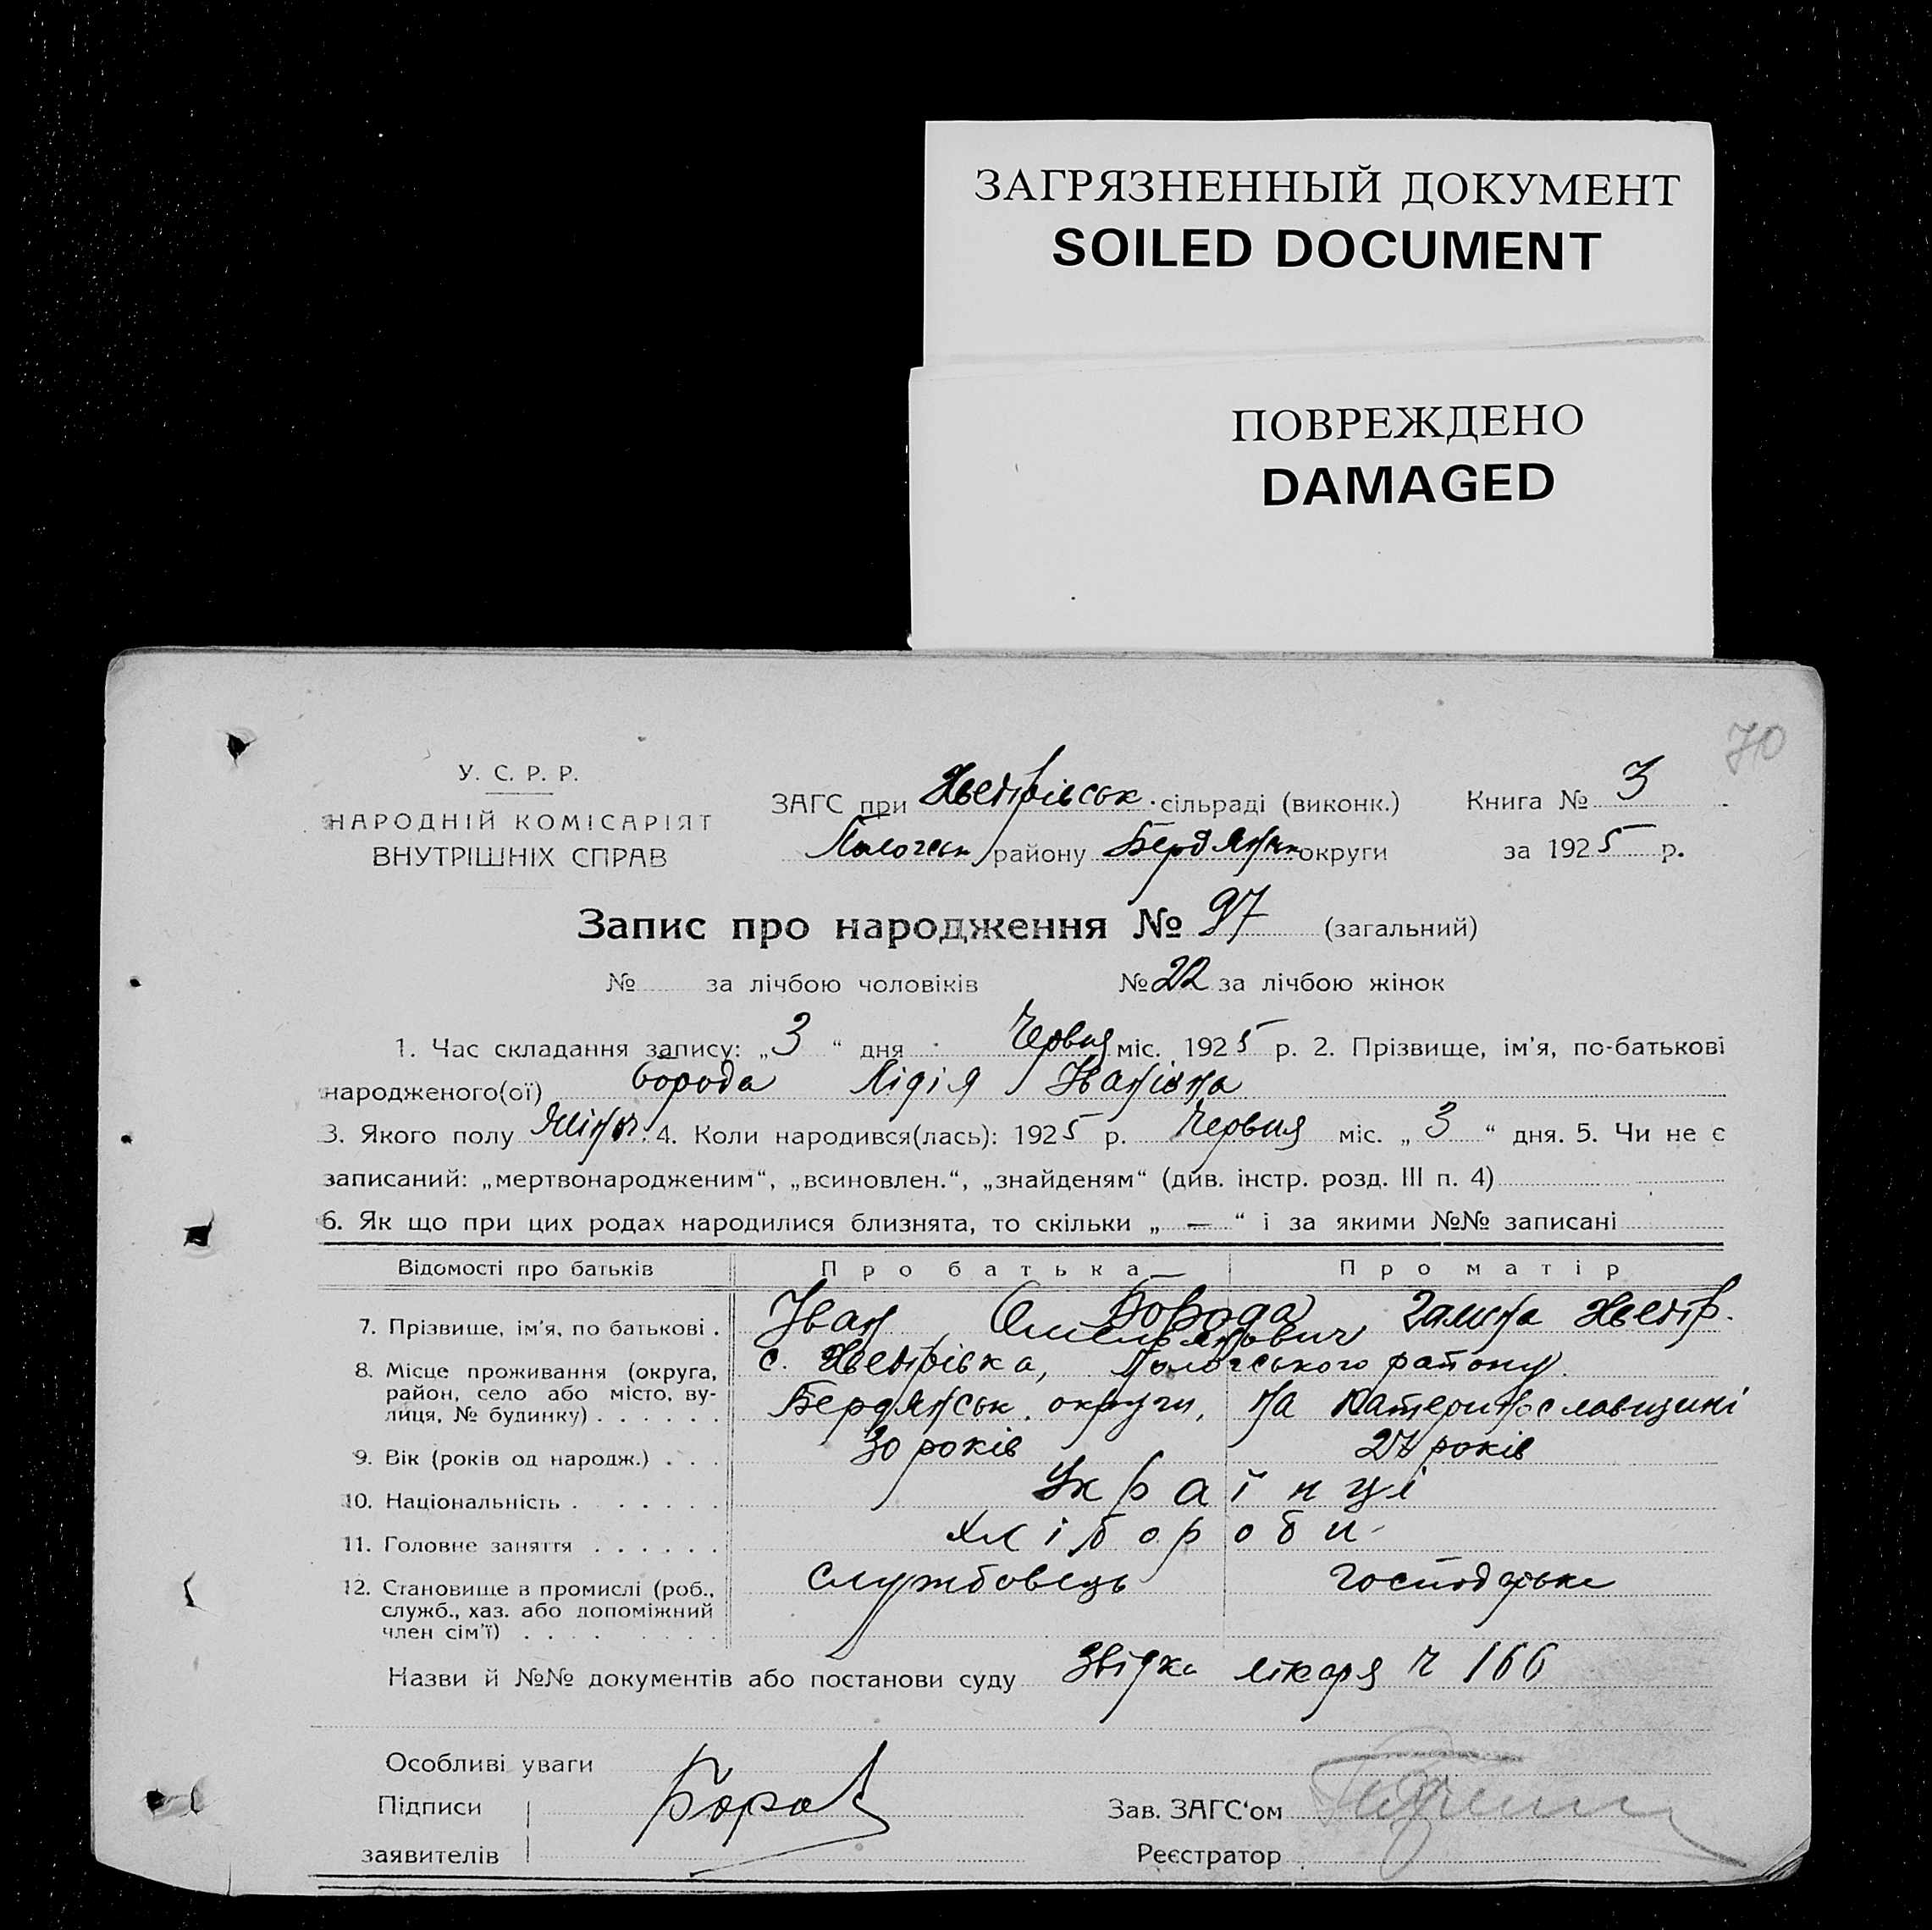 ЗАГРЯЗНЕННЫЙ ДОКУМЕНТ
SOILED DOCUMENT
ПОВРЕЖДЕНО
DAMAGED
70
У. С. Р. Р.
НАРОДНІЙ КОМІСАРІЯТ
ВНУТРІШНІХ СПРАВ
ЗАГС при Хведрівськ. сільраді (виконк.) Книга № 3
Пологськ району Бердянськ округи за 1925 р.
Запис про народження № 97 (загальний)
№ за лічбою чоловіків № 22 за лічбою жінок
1. Час складання запису: „3“ дня Червня міс. 1925 р. 2. Прізвище, ім'я, по-батькові
народженого(ої) Борода Лідія Іванівна
3. Якого полу жіноч. 4. Коли народився(лась): 1925 р. Червня міс. „3“ дня. 5. Чи не є
записаний: „мертвонародженим“, „всиновлен.“, „знайденям“ (див. інстр. розд. III п. 4)
6. Як що при цих родах народилися близнята, то скільки „—“ і за якими №№ записані
Відомості про батьків Про батька Про матір
7. Прізвище, ім'я, по батькові . Борода Іван Омельянович Галина Хведір.
8. Місце проживання (округа, район, село або місто, вулиця, № будинку) . . . . . .
с. Хведрівка, Пологського району
Бердянськ. округи, на Катеринославщині
9. Вік (років од народж.) . . . 30 років 27 років
10. Національність . . . . . . Українці
11. Головне заняття . . . . . . хлібороби
12. Становище в промислі (роб., служб., хаз. або допоміжний член сім'ї) . . . .
службовець господарька
Назви й №№ документів або постанови суду Звідка лікаря ч 166
Особливі уваги
Підписи Борода Зав. ЗАГС'ом
заявителів Реєстратор